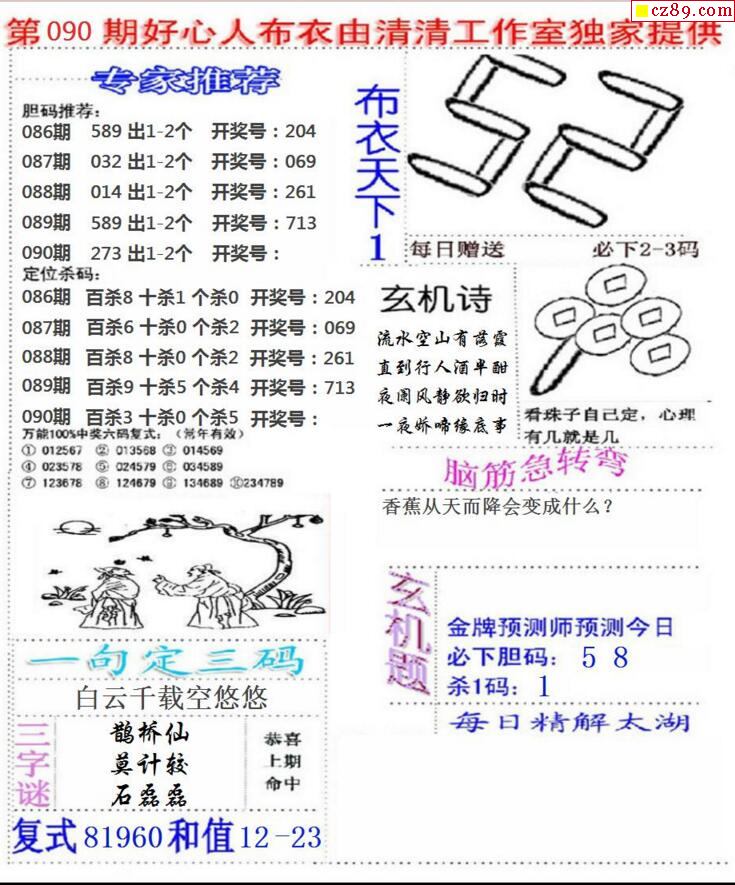 cz89.com
第 090 期好心人布衣由清清工作室独家提供
专家推荐
胆码推荐：
086期 589 出1-2个 开奖号：204
087期 032 出1-2个 开奖号：069
088期 014 出1-2个 开奖号：261
089期 589 出1-2个 开奖号：713
090期 273 出1-2个 开奖号：
定位杀码：
086期 百杀8 十杀1 个杀0 开奖号：204
087期 百杀6 十杀0 个杀2 开奖号：069
088期 百杀8 十杀0 个杀2 开奖号：261
089期 百杀9 十杀5 个杀4 开奖号：713
090期 百杀3 十杀0 个杀5 开奖号：
万能100%中奖六码复式：（常年有效）
① 012567 ② 013568 ③ 014569
④ 023578 ⑤ 024579 ⑥ 034589
⑦ 123678 ⑧ 124679 ⑨ 134689 ⑩234789
一句定三码
白云千载空悠悠
三字谜
鹊桥仙
莫计较
石磊磊
恭喜
上期
命中
复式 81960 和值 12-23
布衣天下1
52
每日赠送 必下2-3码
玄机诗
流水空山有落霞
直到行人酒半酣
夜阑风静欲归时
一夜娇啼缘底事
看珠子自己定，心理
有几就是几
脑筋急转弯
香蕉从天而降会变成什么？
玄机题
金牌预测师预测今日
必下胆码： 5 8
杀1码： 1
每日精解太湖